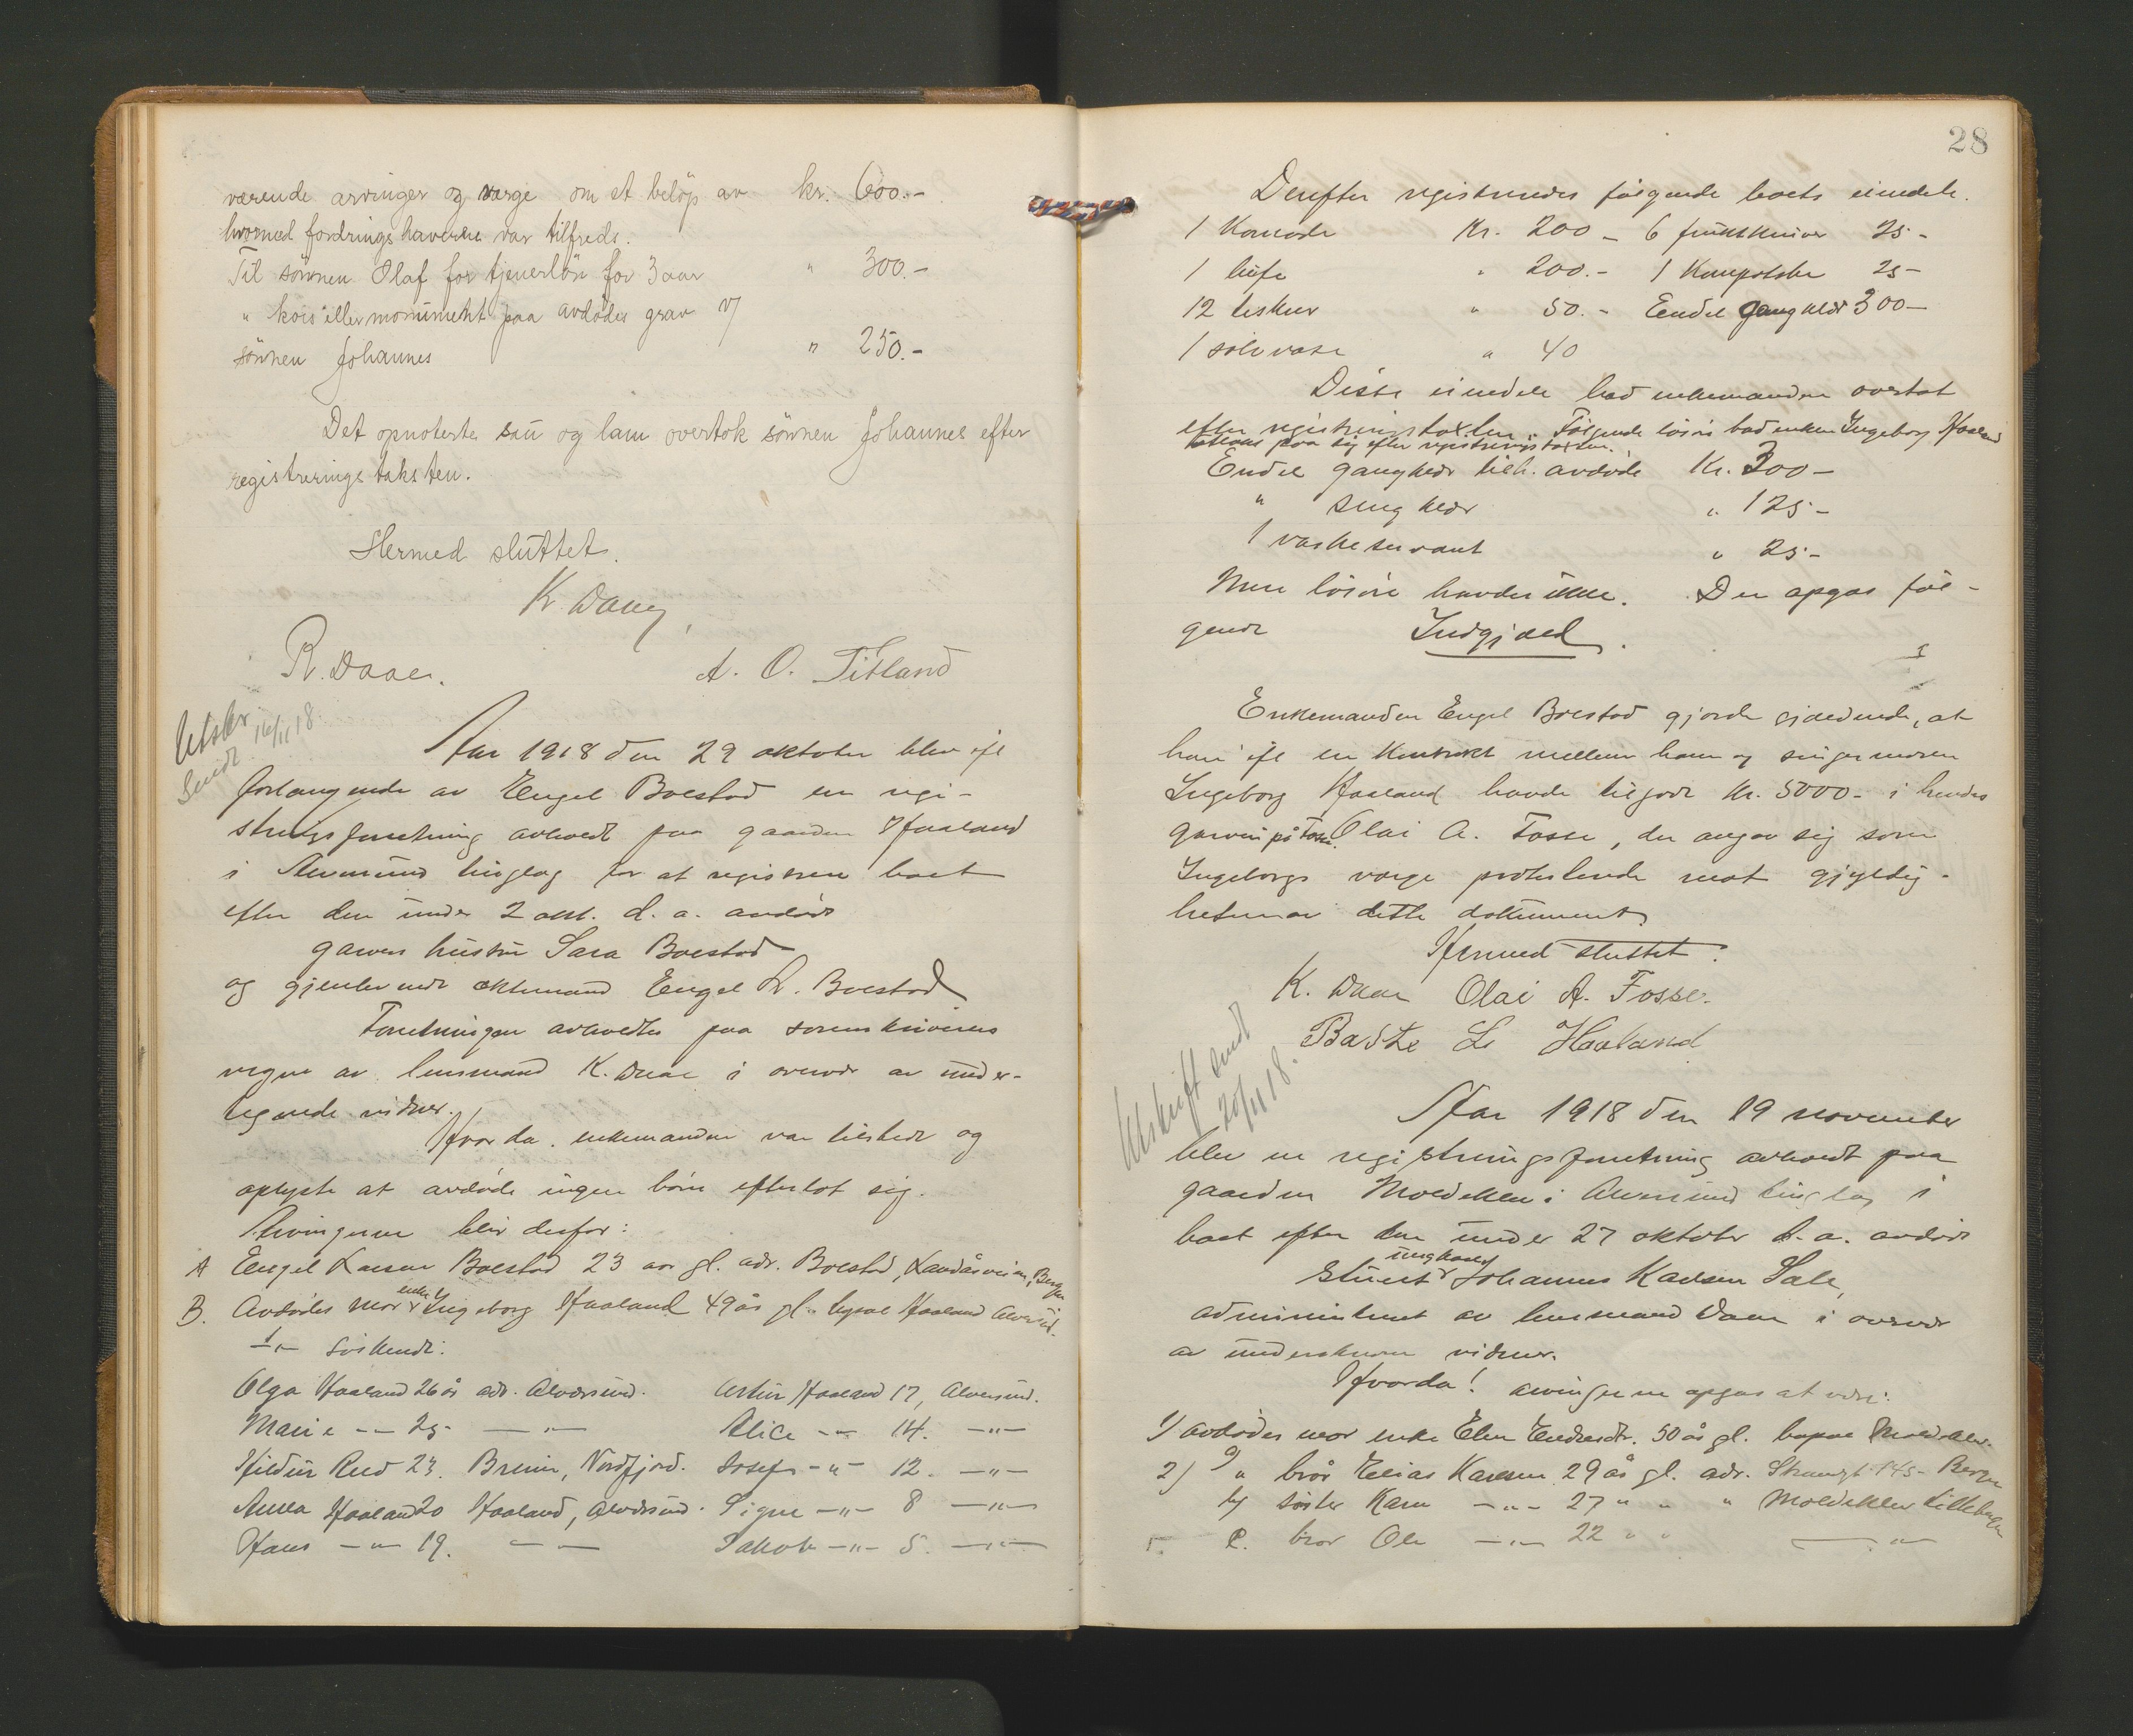 værende arvinger og værge om et beløp av kr. 600.-
hvormed fordringshaverne var tilfreds.
Til sønnen Olaf for tjenerløn for 3 aar " 300.-
" kors eller monument paa avdødes grav v/
sønnen Johannes " 250.-
Det opnoterte sau og lam overtok sønnen Johannes efter
registreringstaksten.
Hermed sluttet.
K. Daae
R. Daae. A. O. Titland
Utskr.
Sendt 16/11 18.
Aar 1918 den 29 oktober blev efl
forlangende av Engel Boestad en regi-
streringsforretning avholdt paa gaarden Haaland
i Alversund tinglag for at registrere boet
efter den under 2 okt. d. a. avdøde
garvers hustru Sara Boestad
og gjenlevende ektemand Engel L. Boestad
Forretningen avholdtes paa sorenskriverens
vegne av lensmand K. Daae i overvær av under-
tegnede vidner.
Hvorda. enkemanden var tilstede og
oplyste at avdøde ingen børn efterlot sig.
Arvingerne blir derfor:
A Engel Larsen Boestad 23 aar gl. adr. Boestad, Landåsveien, Bergen
B. Avdødes mor enke Ingeborg Haaland 49 år gl. bopæl Haaland Alversund.
-"- søskende:
Olga Haaland 26 år adr. Alversund. Artur Haaland 17, Alversund.
Marie -"- 25 - -"- Alice -"- 14. -"-
Hildur Rud 23. Bremen, Nordfjord. Josef -"- 12. -"-
Anna Haaland 20 Haaland, Alversund. Signe -"- 8 -"-
Hans -"- 19. -"- Jakob -"- 5. -"-
28
Derefter registreredes følgende boets eiendele.
1 Komode Kr. 200 - 6 fruktkniver 25 -
1 " 200.- 1 25 -
12 " 50.- Endel gangklær 300 -
1 sølvvase " 40
Disse eiendele bad enkemanden overtat
efter registreringstaxten. Følgende løsøre bad enken Ingeborg Haaland
paa sig efter registreringstaxten.
Endel gangklær tilh. avdøde Kr. 300 -
" sengklær " 125 -
1 vaskeservant " 25 -
Mere løsøre havdes ikke. Der opgas føl-
gende Indgjæld.
Enkemanden Engel Boestad gjorde gjældende, at
han efl en Kontrakt mellem ham og svigermoren
Ingeborg Haaland havde tilgode kr. 5000 - i hendes
Olai A. Fosse, der angav sig som
Ingeborgs værge protesterte mot gyldig-
heten av dette dokument
Hermed sluttet.
K. Daae Olai A. Fosse.
Bastze L. Haaland
Utskrift sendt
20/11 18.
Aar 1918 den 19 november
blev en registreringsforretning avholdt paa
gaarden Moldeklev i Alversund tinglag i
boet efter den under 27 oktober d. a. avdøde
ungkarl Johannes Karlsen Sale,
administrert av lensmand Daae i overvær
av underskrevne vidner.
Hvorda! arvingerne opgas at være:
1) avdødes mor enke Elen Endresdtr. 50 år gl. bopæl Moldeklev.
2) a) " bror Elias Karlsen 29 år gl. adr. Strandgt 145 - Bergen
b) søster Karen -"- 27 " " " Moldeklev Lillebergen
c. bror Ole -"- 22 " " -"-